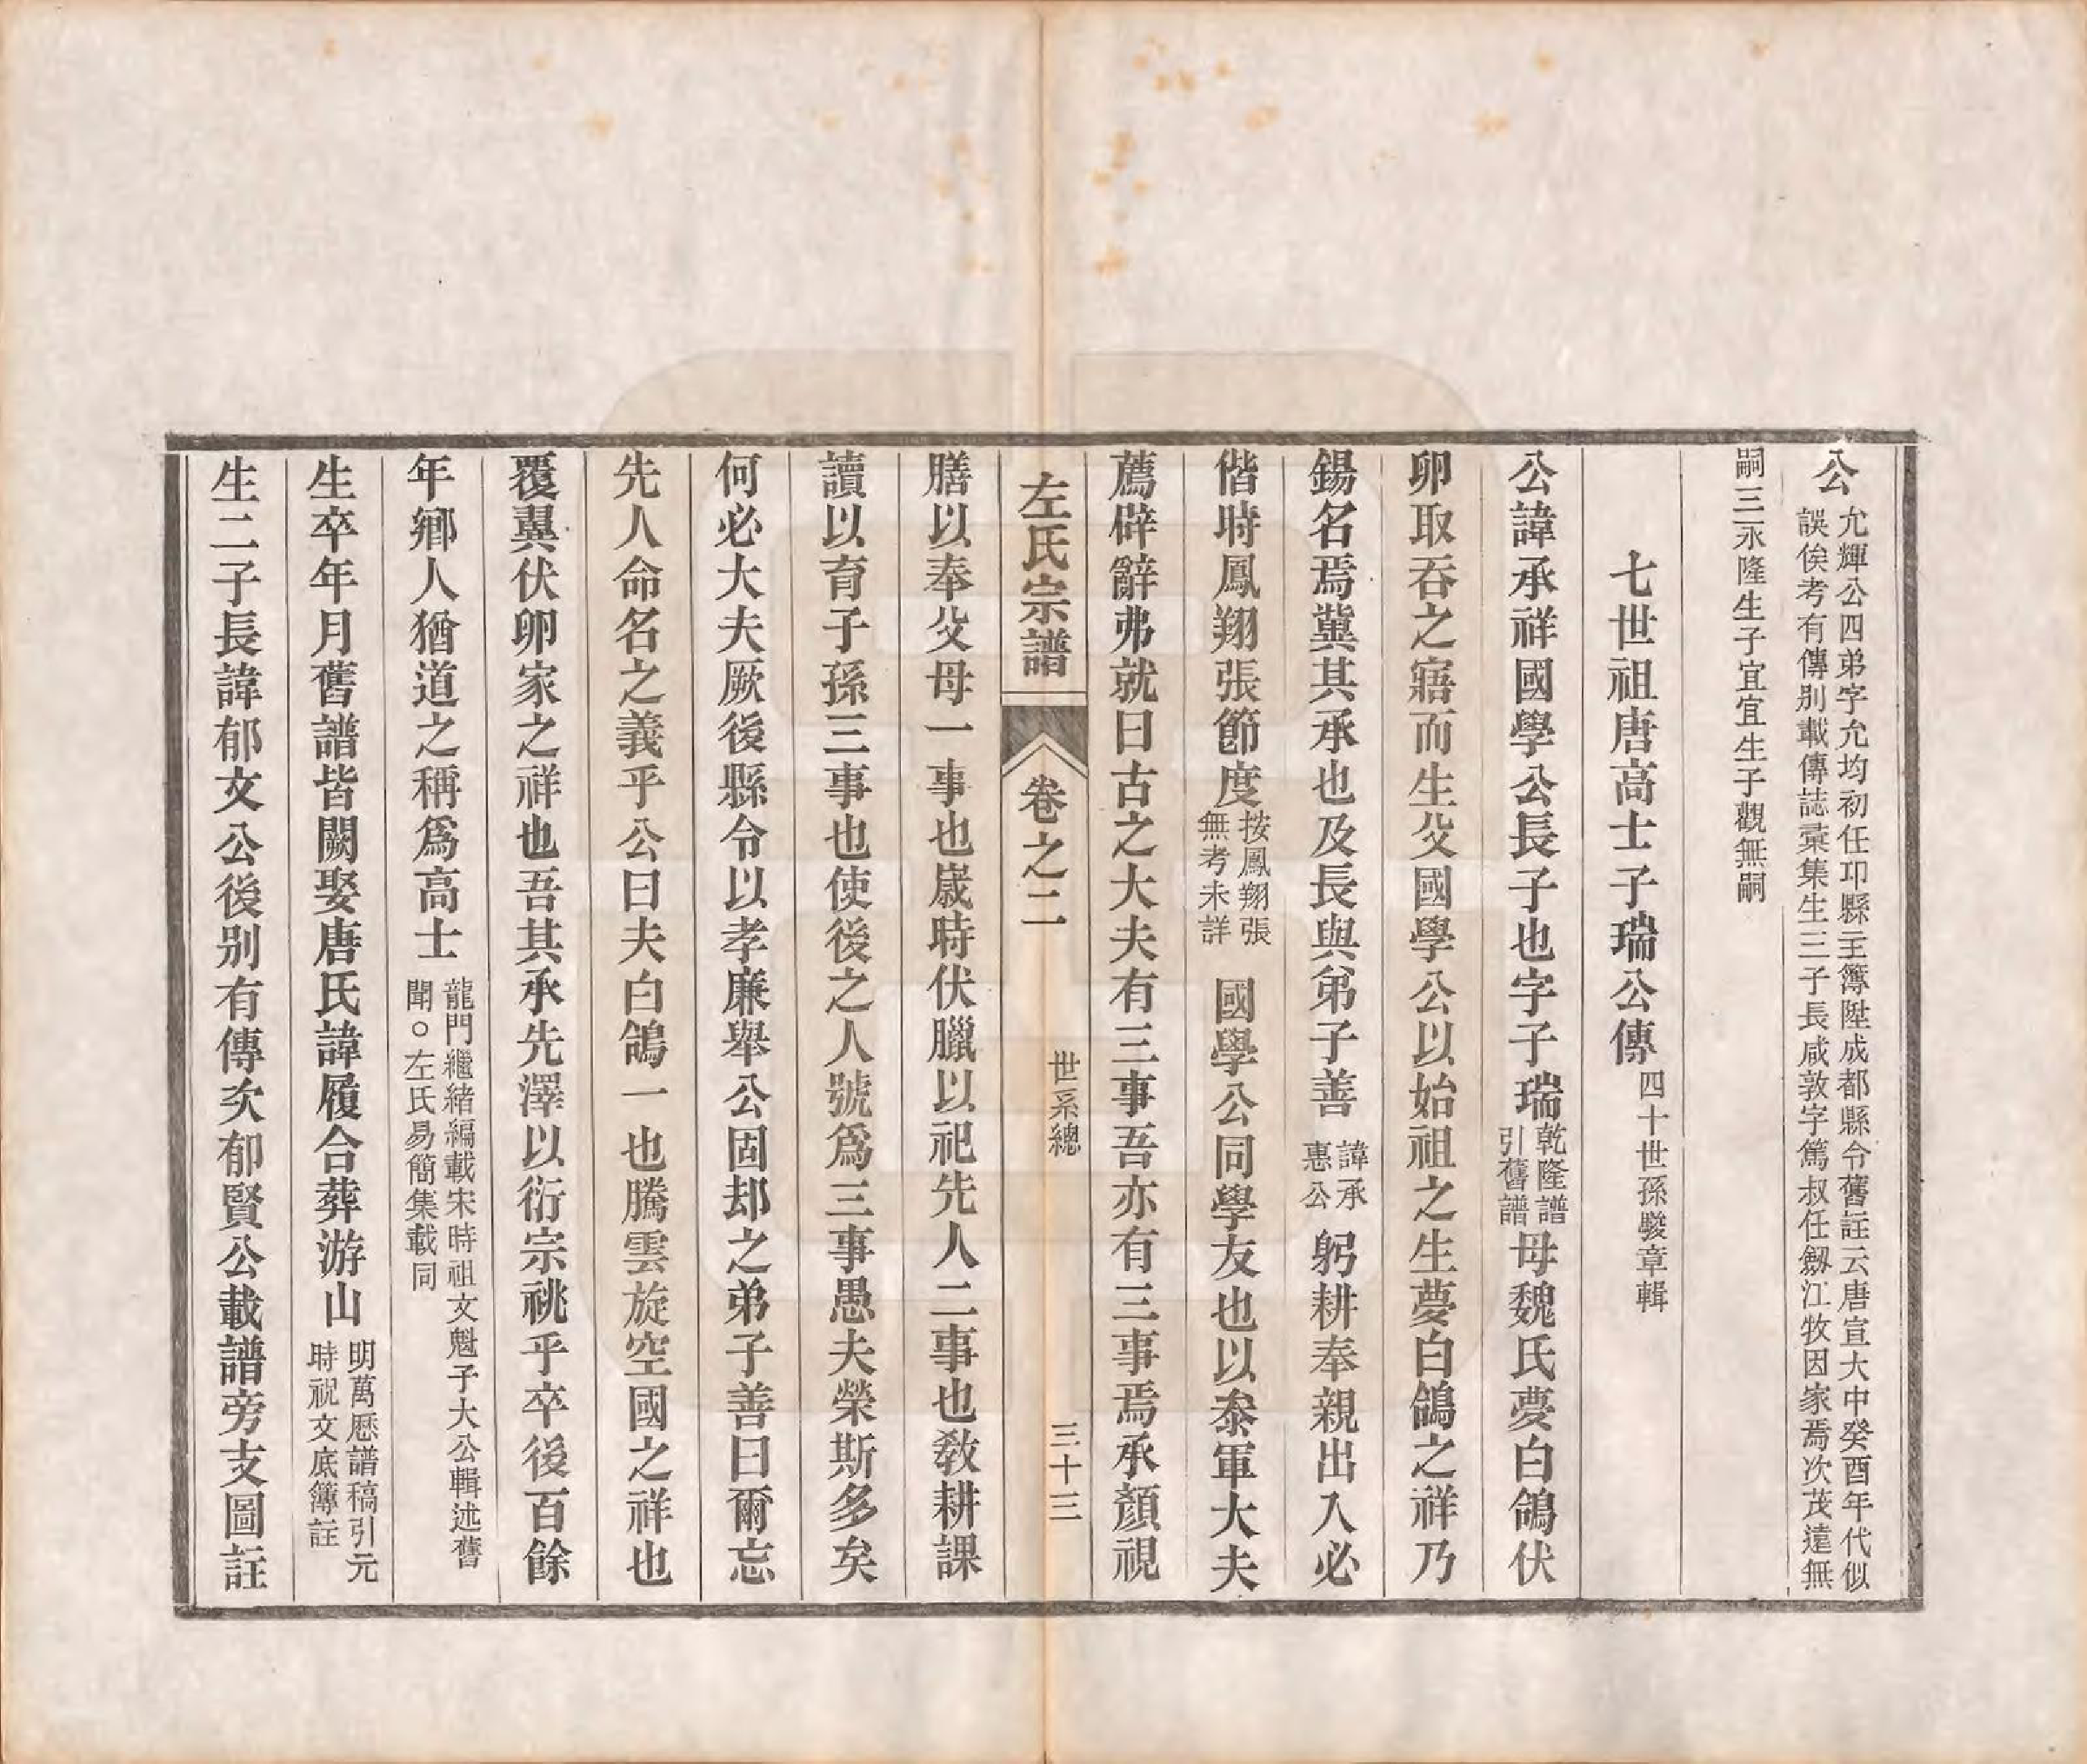 公允輝公四弟字允均初任邛縣主簿陞成都縣令舊註云唐宣大中癸酉年代似
誤俟考有傳别載傳誌彙集生三子長咸敦字篤叔任劒江牧因家焉次茂遠無
嗣三永隆生子宜宜生子觀無嗣
七世祖唐高士子瑞公傳四十世孫駿章輯
公諱承祥國學公長子也字子瑞乾隆譜引舊譜母魏氏夢白鴿伏
卵取吞之寤而生父國學公以始祖之生夢白鴿之祥乃
錫名焉冀其承也及長與弟子善諱承惠公躬耕奉親出入必
偕時鳳翔張節度按鳳翔張無考未詳國學公同學友也以叅軍大夫
薦辟辭弗就曰古之大夫有三事吾亦有三事焉承顏視
左氏宗譜 卷之二 世系總 三十三
膳以奉父母一事也歲時伏臘以祀先人二事也敎耕課
讀以育子孫三事也使後之人號爲三事愚夫榮斯多矣
何必大夫厥後縣令以孝廉舉公固却之弟子善曰爾忘
先人命名之義乎公曰夫白鴿一也騰雲旋空國之祥也
覆翼伏卵家之祥也吾其承先澤以衍宗祧乎卒後百餘
年鄉人猶道之稱爲高士龍門繼緒編載宋時祖文魁子大公輯述舊
聞○左氏易簡集載同
生卒年月舊譜皆闕娶唐氏諱履合葬游山明萬曆譜稿引元
時祝文底簿註
生二子長諱郁文公後别有傳次郁賢公載譜旁支圖註